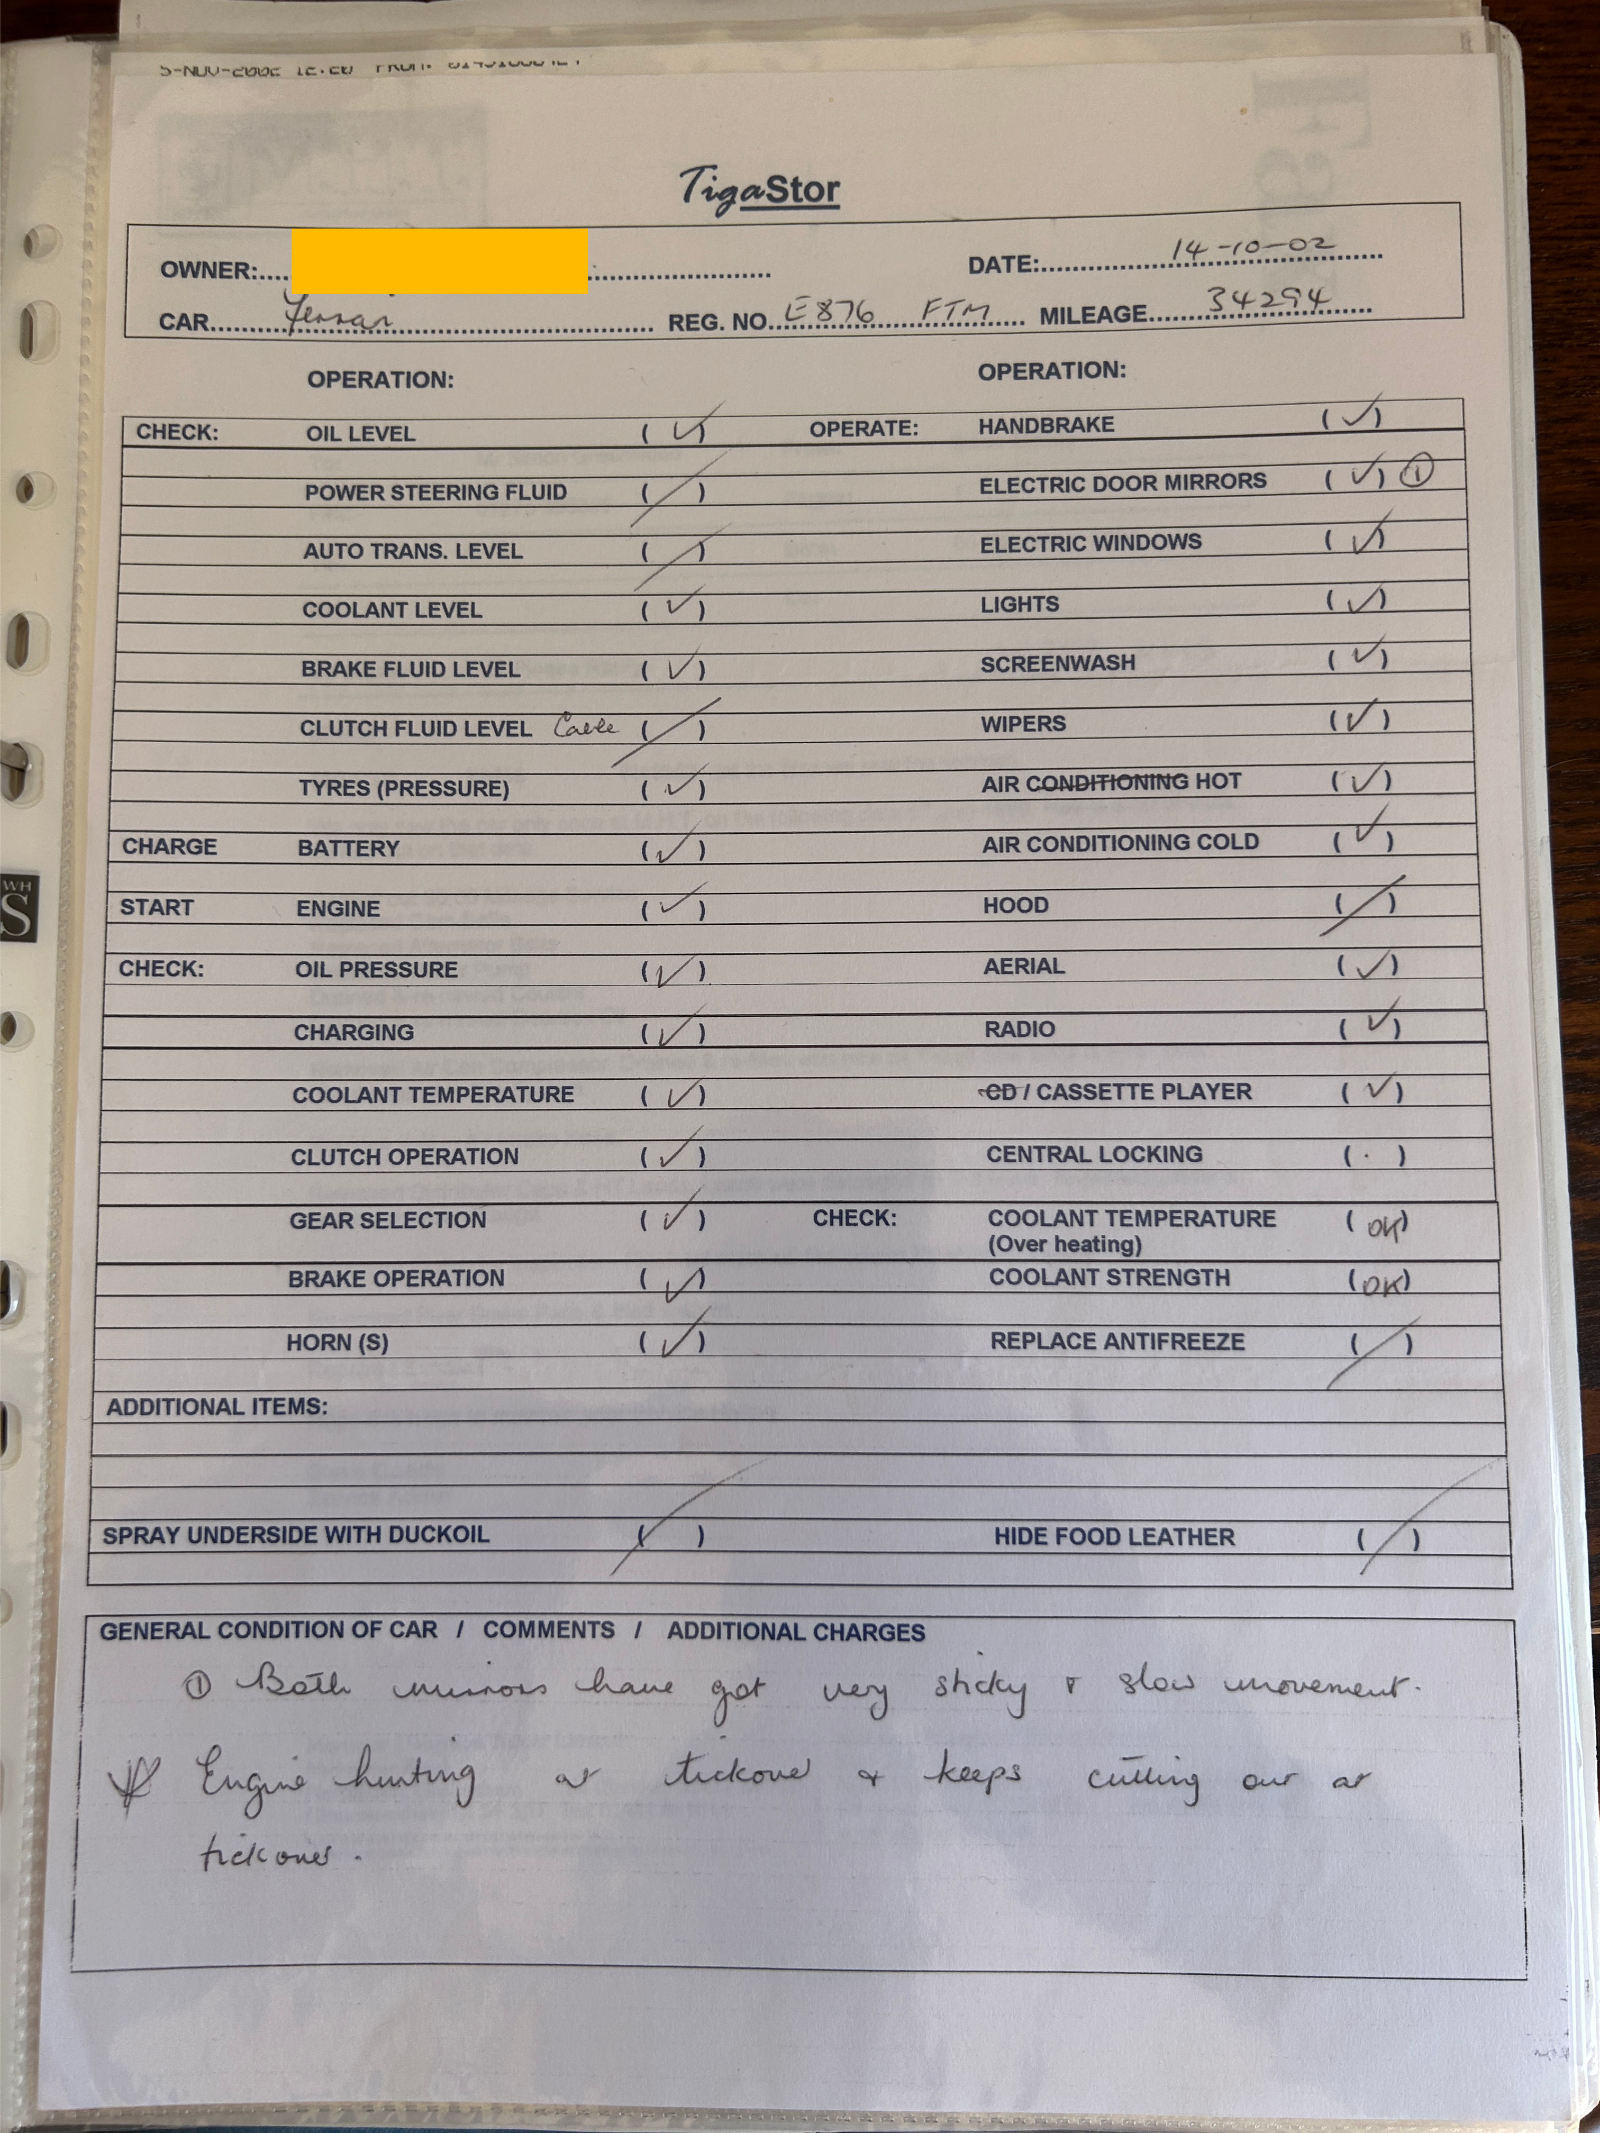 5-NOV-2002 12:20 FROM:
TigaStor
OWNER:.... DATE: 14-10-02
CAR Ferrari REG. NO. E876 FTM MILEAGE 34294
OPERATION: OPERATION:
CHECK: OIL LEVEL (✓) OPERATE: HANDBRAKE (✓)
POWER STEERING FLUID (/) ELECTRIC DOOR MIRRORS (✓) ①
AUTO TRANS. LEVEL (/) ELECTRIC WINDOWS (✓)
COOLANT LEVEL (✓) LIGHTS (✓)
BRAKE FLUID LEVEL (✓) SCREENWASH (✓)
CLUTCH FLUID LEVEL Cable (/) WIPERS (✓)
TYRES (PRESSURE) (✓) AIR CONDITIONING HOT (✓)
CHARGE BATTERY (✓) AIR CONDITIONING COLD (✓)
START ENGINE (✓) HOOD (/)
CHECK: OIL PRESSURE (✓) AERIAL (✓)
CHARGING (✓) RADIO (✓)
COOLANT TEMPERATURE (✓) CD / CASSETTE PLAYER (✓)
CLUTCH OPERATION (✓) CENTRAL LOCKING (·)
GEAR SELECTION (✓) CHECK: COOLANT TEMPERATURE (OK)
(Over heating)
BRAKE OPERATION (✓) COOLANT STRENGTH (OK)
HORN (S) (✓) REPLACE ANTIFREEZE (/)
ADDITIONAL ITEMS:
SPRAY UNDERSIDE WITH DUCKOIL (/) HIDE FOOD LEATHER (/)
GENERAL CONDITION OF CAR / COMMENTS / ADDITIONAL CHARGES
① Both mirrors have got very sticky & slow movement.
Engine hunting at tickover & keeps cutting out at
tickover.
WH
S